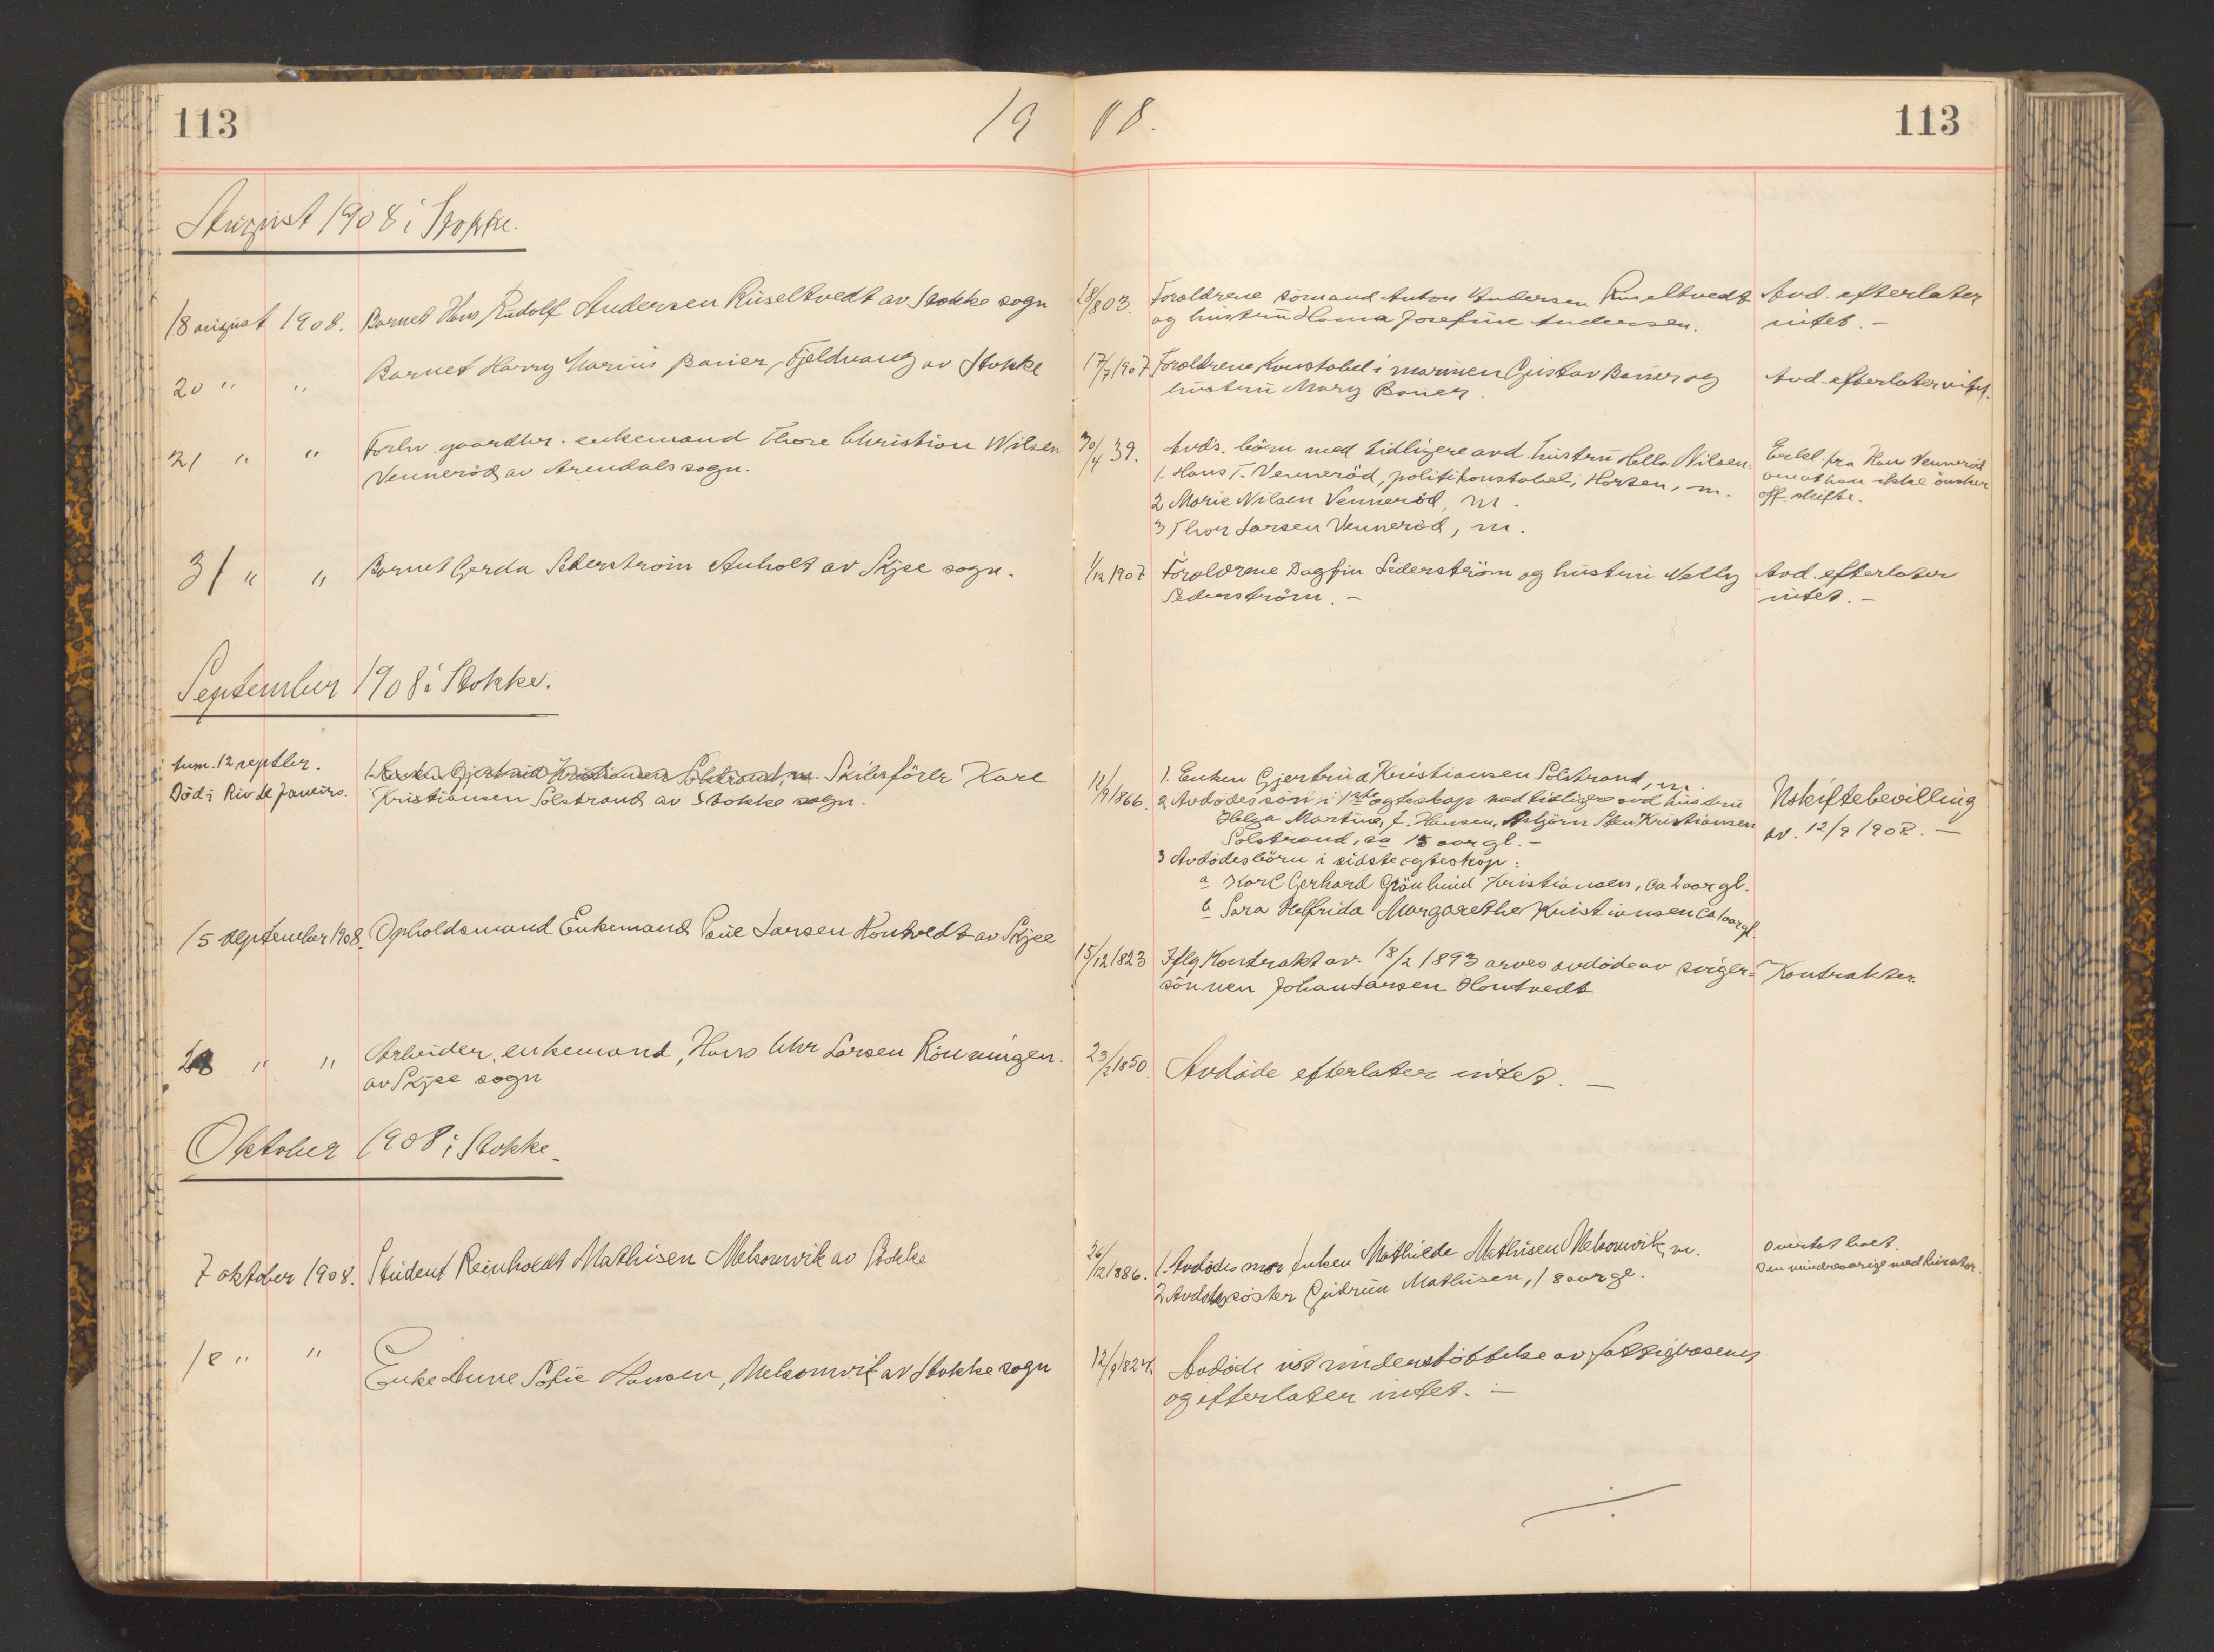 113
19 08.
113
August 1908 i Stokke.
18 august 1908. Barnet Hans Rudolf Andersen Ruseltvedt av Stokke sogn
18/8 03. Foræoldrene sömand Anton Andersen Ruseltvedt
og hustru Hanna Josefine Andersen.
Avd. efterlater
intet. –
20 " " Barnet Harry Marius Baner, Fjeldvang av Stokke
17/7 1907 Foræoldrene, Konstabel i marinen Gustav Baner og
hustru Mary Baner.
Avd. efterlater intet.
21 " " Forhv. gaardbr. enkemand Thore Christian Nilsen
Venneröd av Arendals sogn.
30/4 39. Avds. börn med tidligere avd. hustru Hella Nilsen:
1. Hans T. Venneröd, politikonstabel, Horten, m.
2 Marie Nilsen Venneröd, m.
3 Thor Larsen Venneröd, m.
Erkl. fra Hans Venneröd
om at han ikke önsker
off. skifte.
31 " " Barnet Gerda Sederström Anholt av Skjee sogn.
1/12 1907 Foræoldrene Dagfin Sederström og hustru Nelly
Sederström. –
Avd. efterlater
intet. –
September 1908 i Stokke.
Anm. 12 septbr.
Död i Rio de Janeiro.
1. Enken Gjertrud Kristiansen Solstrand, m. Skibsförer Karl
Kristiansen Solstrand av Stokke sogn.
12/9 1866. 1. Enken Gjertrud Kristiansen Solstrand, m.
2 Avdödes sön i 1ste egteskap med tidligere avd hustru
Helga Martine, f. Hansen, Asbjörn Sten Kristiansen
Solstrand, ca 15 aar gl. –
3 Avdödes börn i sidste egteskap:
a Karl Gerhard Grönlund Kristiansen, ca 2 aar gl.
b Sara Helfrida Margarethe Kristiansen ca 1 aar gl.
Uskiftebevilling
av. 12/9 1908. –
15 september 1908. Opholdsmand Enkemand Paul Larsen Hontvedt av Skjee
15/12 1823 Iflg Kontrakt av 18/2 1893 arves avdöde av sviger=
sönnen Johan Larsen Hontvedt
Kontrakter.
28 " " Arbeider, enkemand, Hans Chr Larsen Rönningen.
av Skjee sogn
23/2 1850. Avdöde efterlater intet. –
Oktober 1908 i Stokke.
7 oktober 1908. Student Reinholdt Mathisen Melsomvik av Stokke
26/12 1886. 1. Avdödes mor Enken Mathilde Mathisen Melsomvik, m.
2 Avdödes söster Gudrun Mathisen, 18 aar gl.
Overtat boet.
Den mindreaarige med kurator.
18 " " Enke Anne Sofie Hansen, Melsomvik av Stokke sogn
12/9 1824. Avdöde nöt understöttelse av fattigvæsenet
og efterlater intet. –